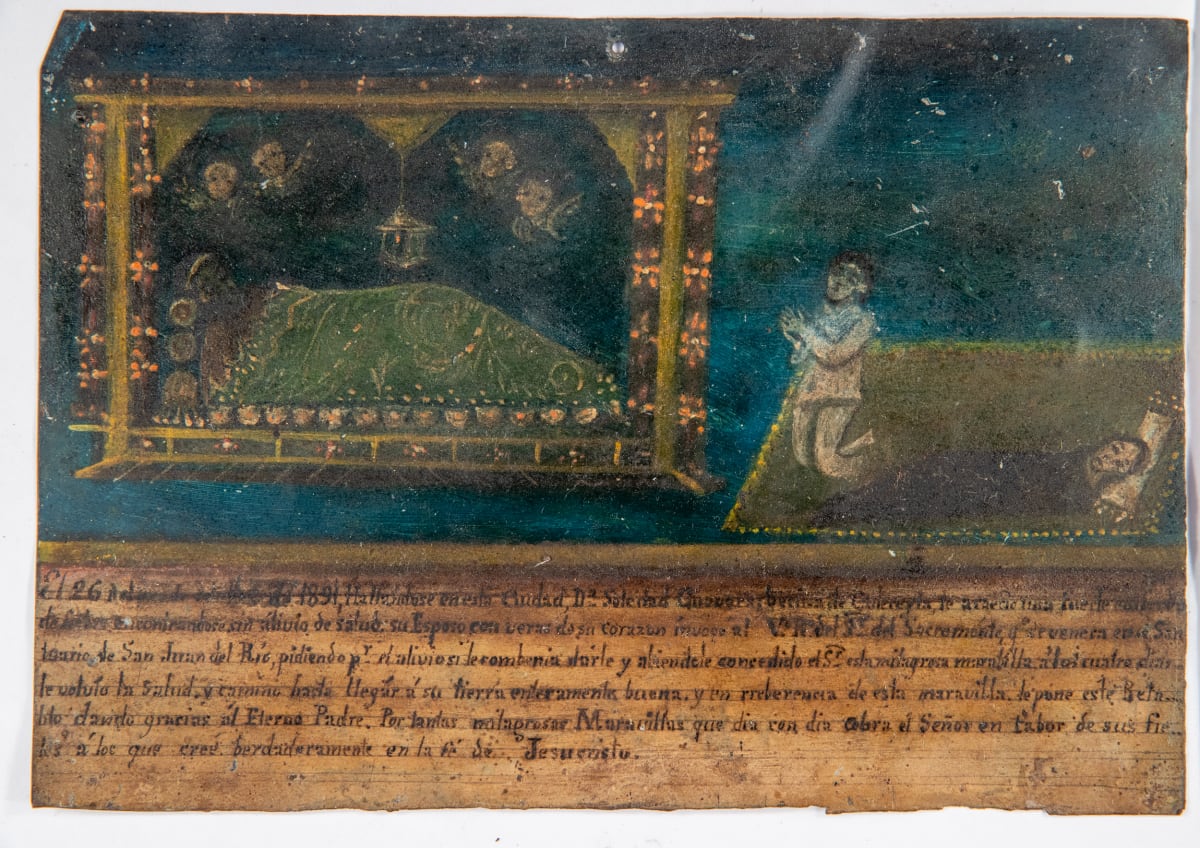 El 26 de 1891, hallandose en esta Ciudad, D.ª Soledad Guevara, becina de Cincrepla, le acaecio una fuerte
de fiebre encontrandose sin alivio de salud. su Esposo con veras de su corazon invoco al V. R. del S.r del Sacromonte, q.e se venera en el San
tuario, de San Juan del Rio, pidiendo p.r el alivio si le combenia darle y abiendole concedido el S.r esta milagrosa marabilla á los cuatro dias
le volvio la salud, y camino hasta llegar á su tierra enteramente buena. y en rreberencia de esta maravilla. le pone este Reta_
blo dando gracias al Eterno Padre. Por tantas milagrosas Maravillas que dia con dia obra el Señor en fabor de sus fie_
les á los que creé berdaderamente en la fé de Jesucristo.